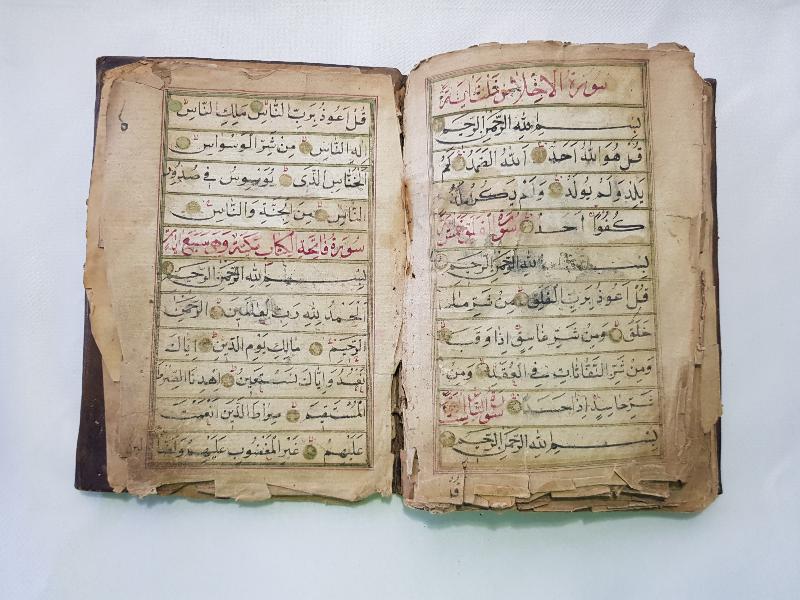 سورة الاخلاص ثلث اية
بسم الله الرحمن الرحيم
قُلْ هُوَ اللهُ اَحَدٌ اَللهُ الصَّمَدُ لَمْ
يَلِدْ وَلَمْ يُولَدْ وَلَمْ يَكُنْ لَهُ
كُفُوًا اَحَدٌ سورة الفلق خمس
بسم الله الرحمن الرحيم
قُلْ اَعُوذُ بِرَبِّ الْفَلَقِ مِنْ شَرِّ مَا
خَلَقَ وَمِنْ شَرِّ غَاسِقٍ اِذَا وَقَبَ
وَمِنْ شَرِّ النَّفَّاثَاتِ فِي الْعُقَدِ وَمِنْ
شَرِّ حَاسِدٍ اِذَا حَسَدَ سورة الناس
بسم الله الرحمن الرحيم
قُلْ
قُلْ اَعُوذُ بِرَبِّ النَّاسِ مَلِكِ النَّاسِ
اِلهِ النَّاسِ مِنْ شَرِّ الْوَسْوَاسِ
الْخَنَّاسِ الَّذِي يُوَسْوِسُ فِي صُدُورِ
النَّاسِ مِنَ الْجِنَّةِ وَالنَّاسِ
سورة فاتحة الكتاب مكية وهي سبع اية
بسم الله الرحمن الرحيم
اَلْحَمْدُ لِلهِ رَبِّ الْعَالَمِينَ الرَّحْمنِ
الرَّحِيمِ مَالِكِ يَوْمِ الدِّينِ اِيَّاكَ
نَعْبُدُ وَاِيَّاكَ نَسْتَعِينُ اِهْدِنَا الصِّرَاطَ
الْمُسْتَقِيمَ صِرَاطَ الَّذِينَ اَنْعَمْتَ
عَلَيْهِمْ غَيْرِ الْمَغْضُوبِ عَلَيْهِمْ وَلَا